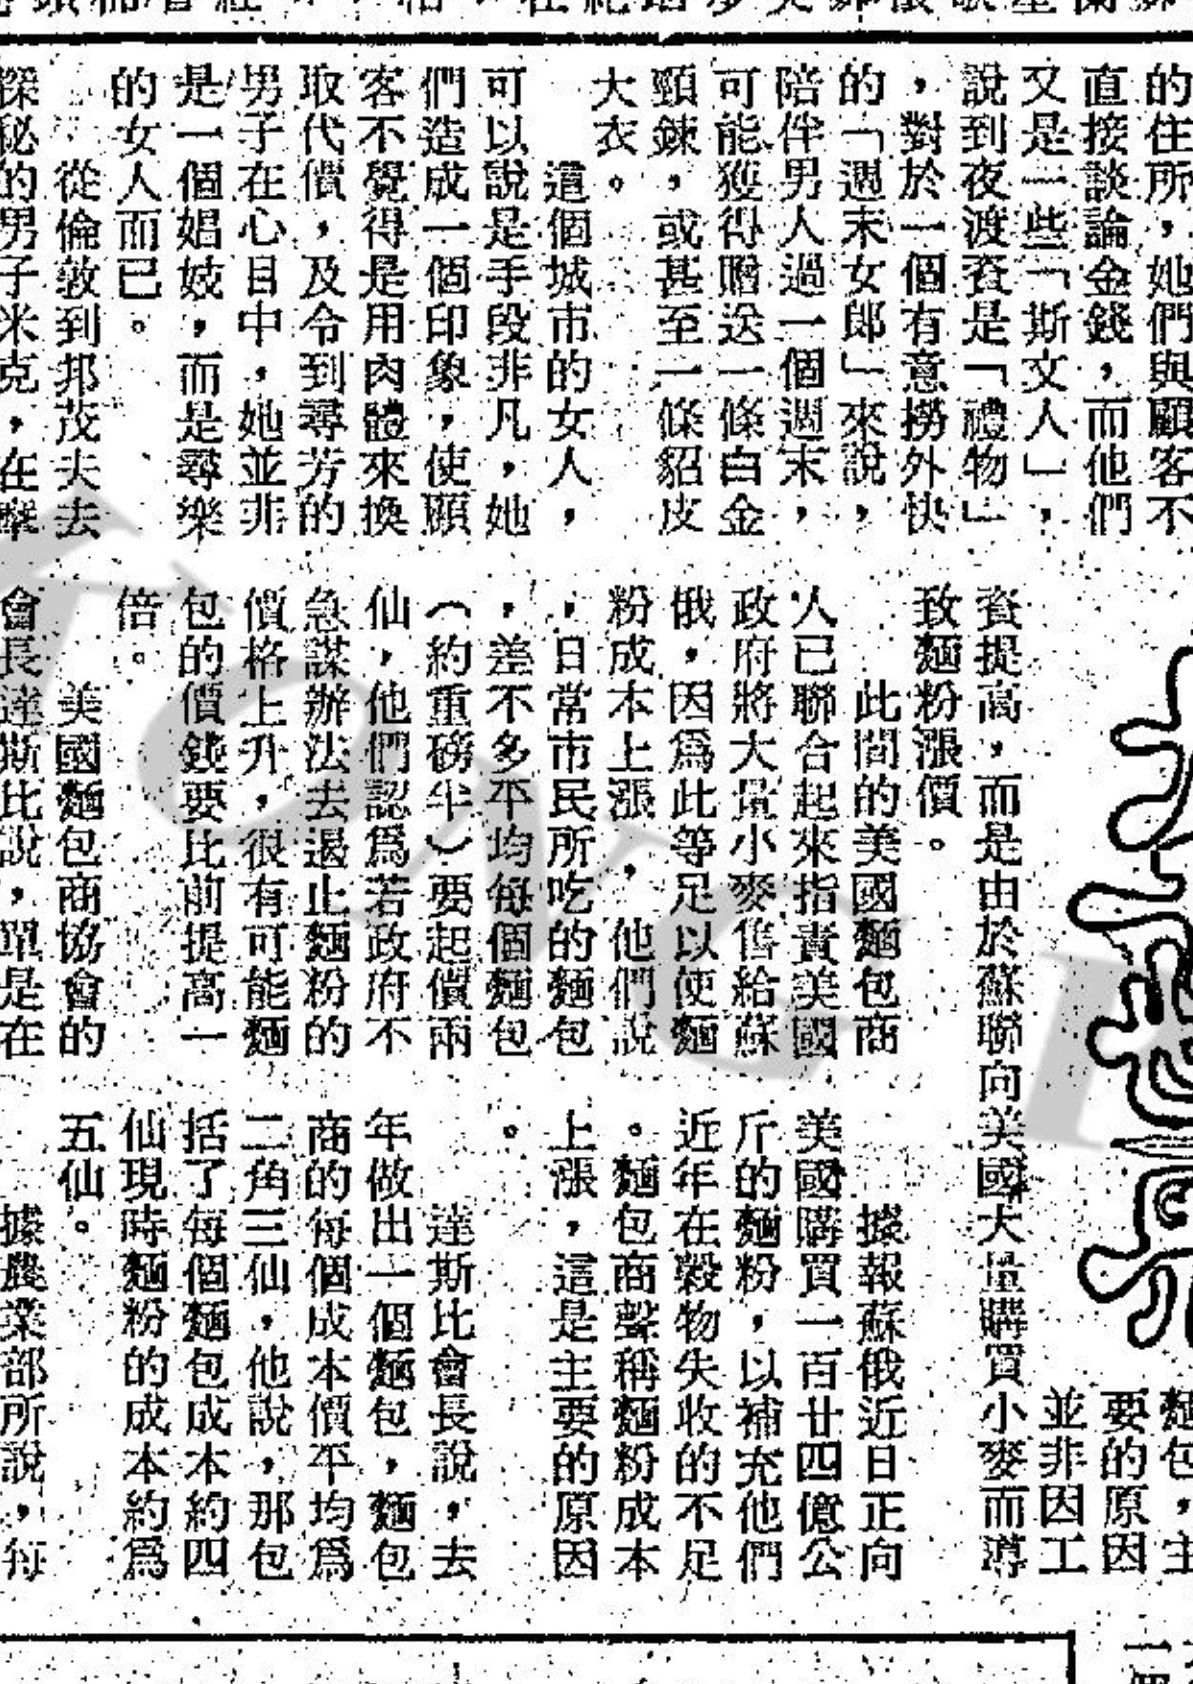 的住所，她們與顧客不
直接談論金錢，而他們
又是一些「斯文人」，
說到夜渡資是「禮物」
，對於一個有意撈外快
的「週末女郎」來說，
陪伴男人過一個週末，
可能獲得贈送一條白金
頸鍊，或甚至一條貂皮
大衣。
這個城市的女人，
可以說是手段非凡，她
們造成一個印象，使顧
客不覺得是用肉體來換
取代價，及令到尋芳的
男子在心目中，她並非
是一個娼妓，而是尋樂
的女人而已。
從倫敦到邦茂夫去
探秘的男子米克，在摩
麵包，主
要的原因
並非因工
資提高，而是由於蘇聯向美國大量購買小麥而導
致麵粉漲價。
此間的美國麵包商
人已聯合起來指責美國
政府將大量小麥售給蘇
俄，因爲此等足以使麵
粉成本上漲，他們說
，日常市民所吃的麵包
，差不多平均每個麵包
（約重磅半）要起價兩
仙，他們認爲若政府不
急謀辦法去遏止麵粉的
價格上升，很有可能麵
包的價錢要比前提高一
倍。
美國麵包商協會的
會長達斯比說，單是在
據報蘇俄近日正向
美國購買一百廿四億公
斤的麵粉，以補充他們
近年在穀物失收的不足
。麵包商聲稱麵粉成本
上漲，這是主要的原因
。
達斯比會長說，去
年做出一個麵包，麵包
商的每個成本價平均爲
二角三仙，他說，那包
括了每個麵包成本約四
仙現時麵粉的成本約爲
五仙。
據農業部所說，每